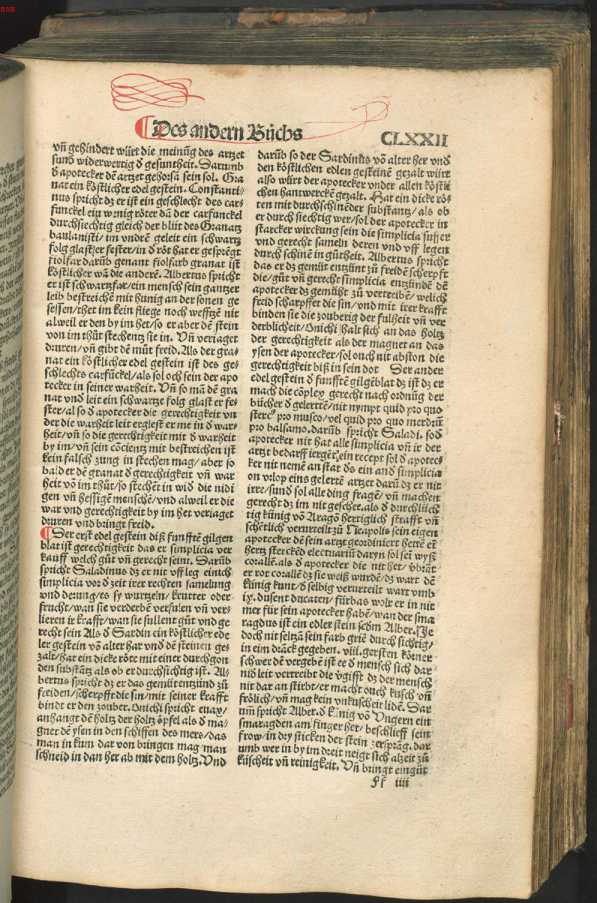 Des andern Bůchs
CLXXII
vñ gehindert würt die meinũg des artzet
sund widerwertig d̄ gesuntheit. Darumb
d̄ apotecker dē artzet gehorsã sein sol. Gra
nat ein kostlicher edel gestein. Constanti-
nus spricht dz er ist ein geschlecht des car-
funckel ein wenig röter dã der carfunckel
durchsichtig gleich der blüt des Granatz
baulanisti/ im vndern geleit ein schwartz
folg glast/er fester/in d̄ röt hat er gesprẽgt
fiolfar darũb genant fiolfarb granat ist
köstlicher wã die anderē. Albertus spricht
er ist schwartzfar/ein mensch sein gantzer
leib bestreichē mit hunig an der sonen ge
sessen/thet im kein fliege noch weffzē nit
al weil er den by im het/so er aber dē stein
von im thůt stechend sie in. Vñ veriaget
druren/vñ gibt dē mũt freid. Als der gra-
nat ein köstlicher edel gestein ist des ge-
schlechts carfũckel/als sol och sein der apo
tecker in seiner warheit. Vñ so mã dē gra
nat vnd leit ein schwartze folg glast er fes
ster/al so d̄ apotecker die gerechtikeit vn
der die warheit leit erglest er me in d̄ war-
heit/vñ so die gerechtigkeit mit d̄ warheit
by im/vñ sein cõcientz mit bestrichen ist
kein falsch zung in stechen mag/ aber so
bald er dē granat d̄ gerechtigkeit vñ war
heit võ im thůt/so stechēt in wid̄ die nidi
gen vñ hessigē menschē/vnd alweil er die
war vnd gerechtigkeit by im het veriaget
druren vnd bringt freid.
Der erst edel gestein diß funfftē gilgen
blat ist gerechtigkeit das er simplicia ver
kauff welch gůt vñ gerecht seint. Darũb
spricht Saladinus dz er nit vff leg einich
simplicia vor d̄ zeit irer rechten samelung
vnd derung/es sy wurtzeln/ krutter oder
frucht/wan sie verderbē verfulen vñ ver-
lieren ir krafft/wan sie sullent gůt vnd ge
recht sein Als d̄ Sardin ein köstlicher ede
ler gestein võ alter har vnd dē steinen ges
zalt/hat ein dicke röte mit einer durchgon
den substãtz als ob er durchsichtig ist. Al-
bertus spricht dz er das gemũt entzünd zů
freiden/scherpfft die sin/mit seiner krafft
bindt er den zouber. Onichi spricht euax/
anhangt dē holtz der holtz öpfel als d̄ ma-
gnet dē ysen in den schiffen des mers/das
man in kum dar von bringen mag man
schneid in dan her ab mit dem holtz. Vnd
darũb so der Sardinus võ alter her vnd
den köstlichen edlen gesteinē gezalt würt
also würt der apotecker vnder allen köstli
chen hantwercke gezalt. Hat ein dicke rös
ten mit durchschinēder substantz/als ob
er durchsiechtig wer/sol der apotecker in
starcker wirckung sein die simplicia suffer
vnd gerecht sameln deren vnd vff legen
durch schinē in gũtheit. Albertus spricht
das er dz gemũt entzũnt zů freidē scherpfft
die/gůt vñ gerecht simplicia entzündē dē
apotecker dz gemüht zů vertreibē/welich
freid scharpffet die sin/vnd mit irer krafft
binden sie die zouberig der fulheit vñ ver
derblicheit/Onichi halt sich an das holtz
der gerechtigkeit als der magnet an das
ysen der apotecker/sol ouch nit abston die
gerechtigkeit biß in sein dot Der ander
edel gestein d̄ funfftē gilgēblat dz ist dz er
mach die cõpley gerecht nach ordnũg der
bücher d̄ gelerttē/nit nympt quid pro quo
stercꝰ pro musco/vel quid pro quo merdũ
pro balsamo. darũb spricht Saladi. so d̄
apotecker nit hat alle simplicia vñ ir der
artzt bedarff irgēt ein recept sol d̄ apotec-
ker nit nemē an stat ds ein and̄ simplicia
on vrlop eins gelertē artzet darũ dz er nit
irre/sund̄ sol alle ding fragē vñ machen
gerecht dz im nit gescher. als d̄ durchlüch
tig künig võ Aragõ hertiglich strafft vñ
schētlich verurteilt zů Neapolis sein eigen
apotecker dē sein artzt geordiniert hette ein
hertz sterckēd electuariũ daryn sol sei wyß
corallē. als d̄ apotecker die nit het/ verbrãt
er ror corallē dz sie weiß wurdē/dz wart dē
künig kunt/d̄ selbig verurteilt wart vmb
ix. dusent ducaten/ fürbas wolt er in nit
mer für sein apotecker habē/wan der sma
ragdus ist ein edler stein schin Alber. Ist
doch nit seltzã sein farb grüē durch sichtig/
in eim drãck gegeben. viij. gersten körner
schwer dē vergebē ist ee d̄ mensch sich dar
nid̄ leit vertreibt die vgifft dz der mensch
nit dar an stirbt/er macht ouch kusch vñ
frölich/vñ mag kein vnkuscheit lidē. Dar
uũ spricht Alber. d̄ künig võ Vngern ein
smaragden am finger het/beschlieff sein
frow/in dry sticken der stein zersprãg. dar
umb wer in by im dreit neigt sich alzeit zů
küscheit vñ reinigkeit. Vñ bringt eingůt
iiii